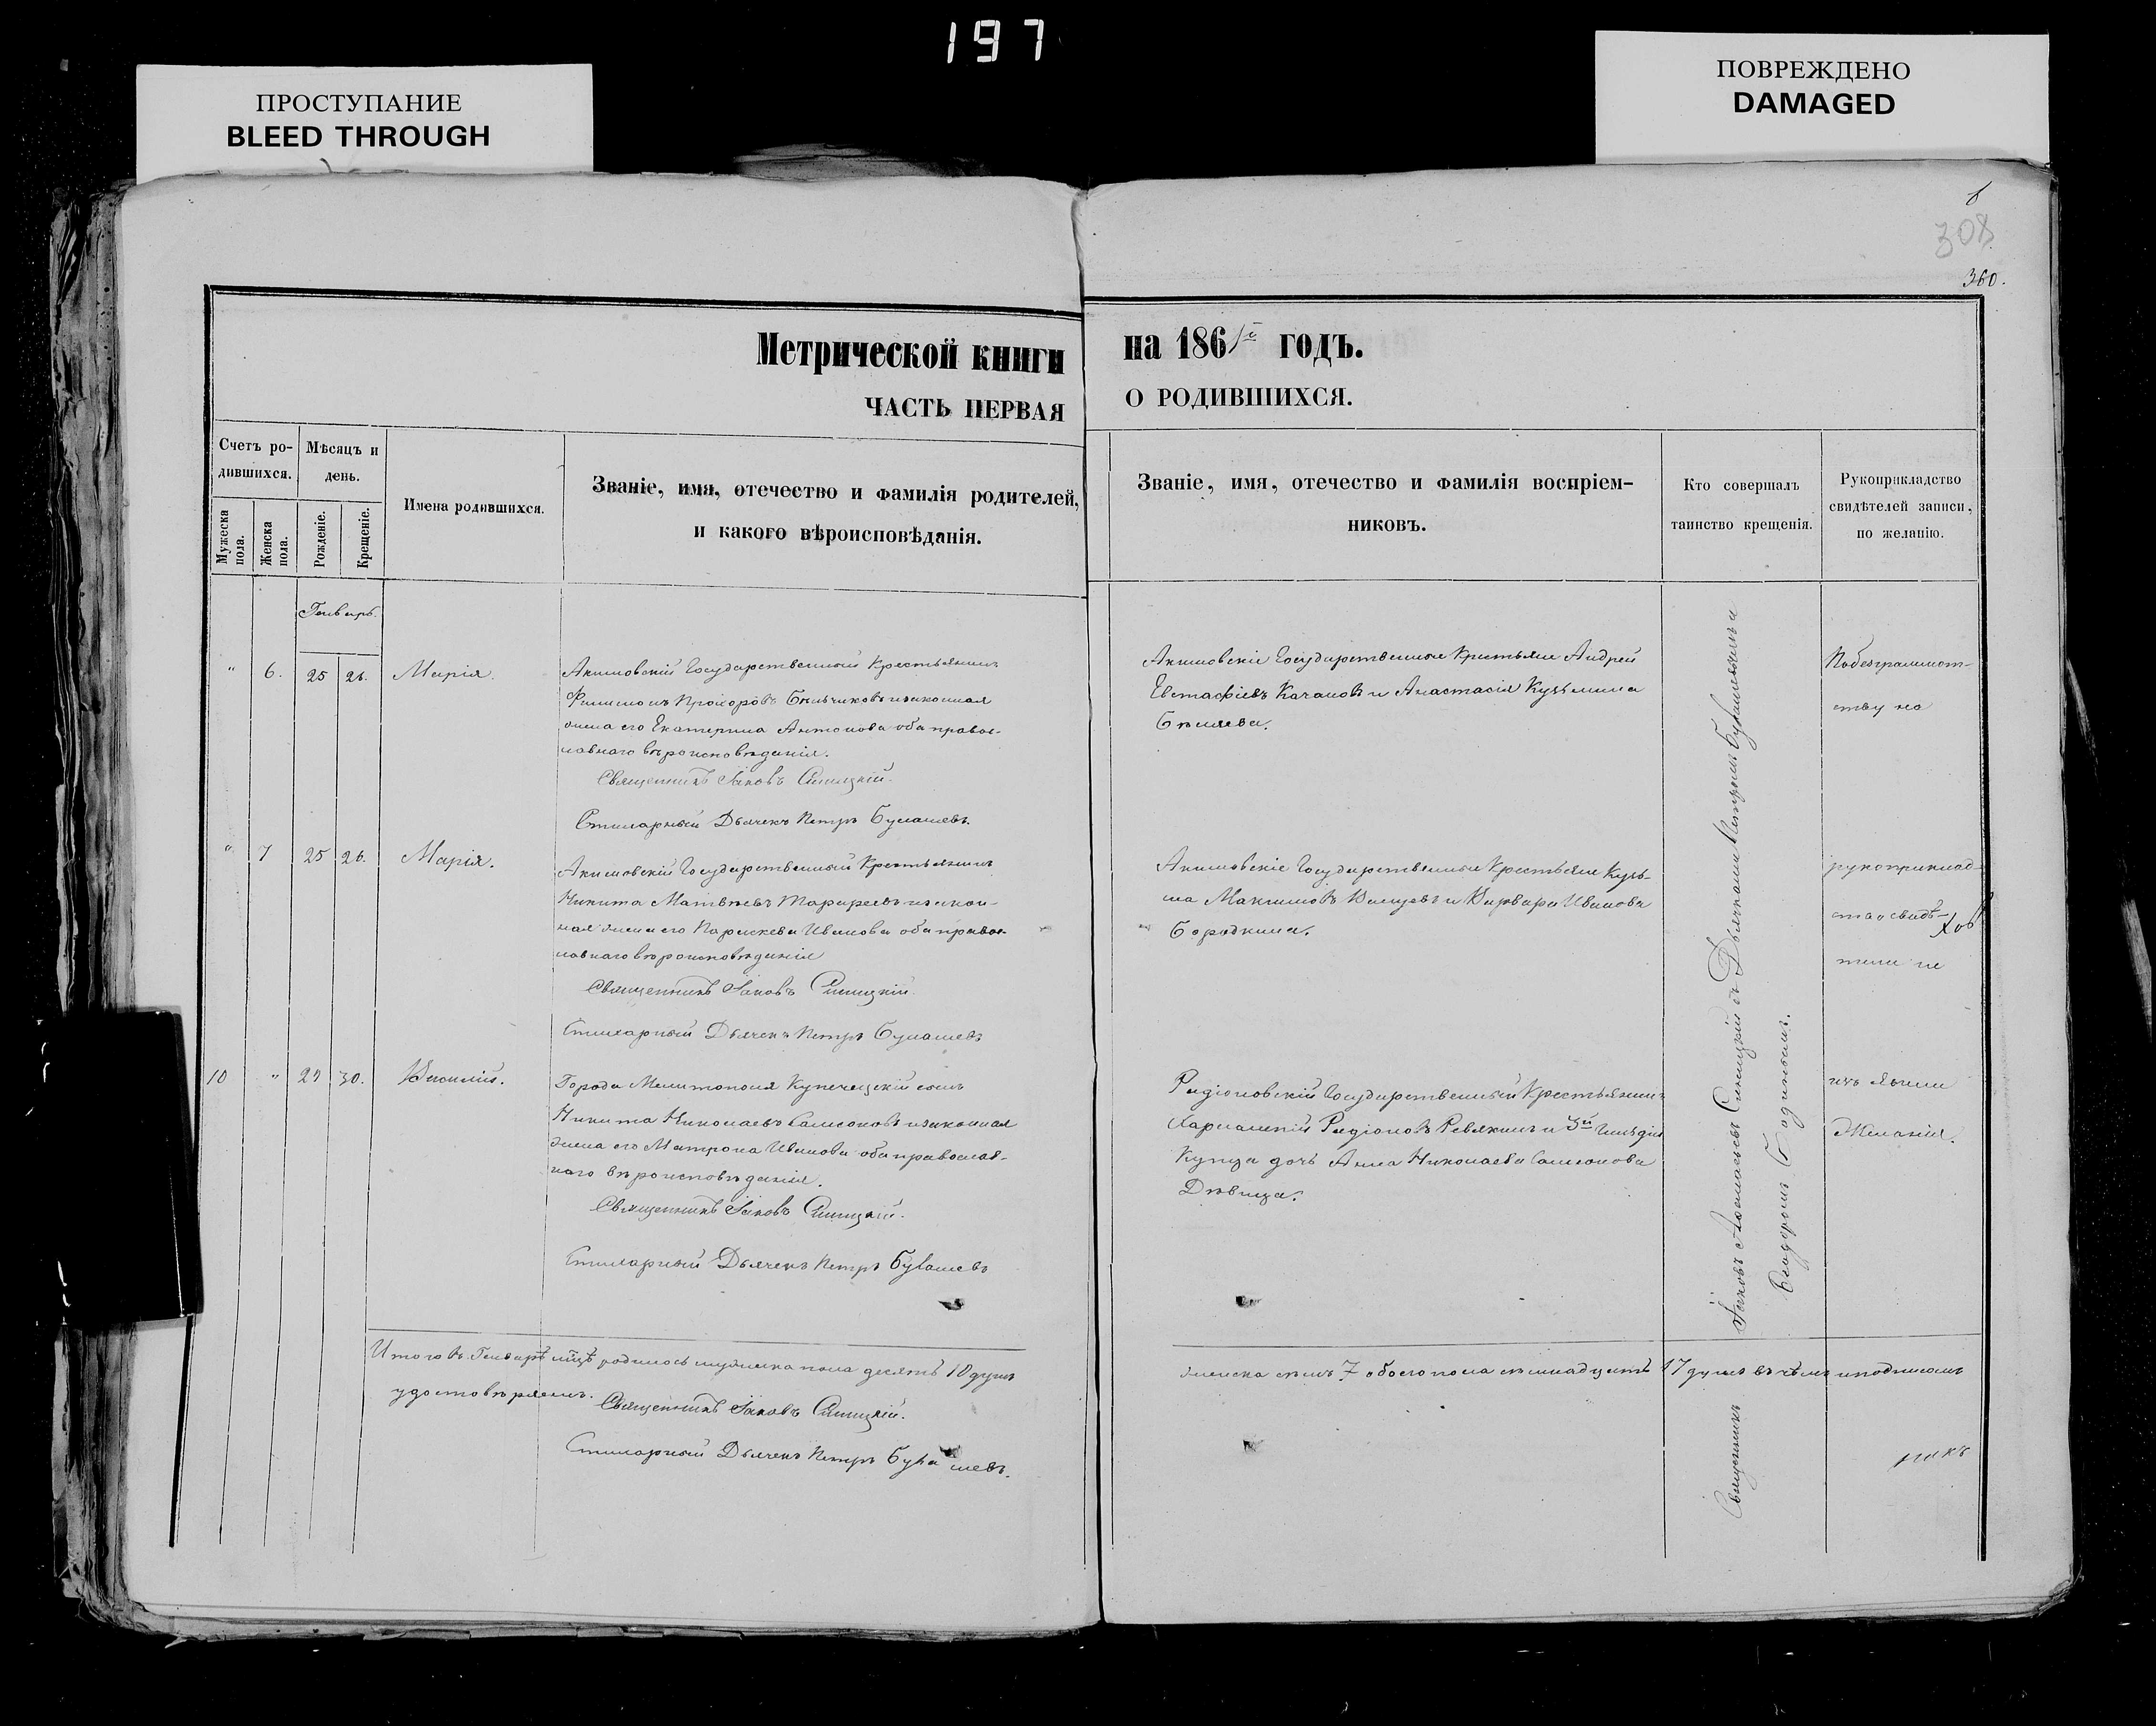 197
ПРОСТУПАНИЕ
BLEED THROUGH
ПОВРЕЖДЕНО
DAMAGED
308
360.
Метрической книги
ЧАСТЬ ПЕРВАЯ
на 1861й годъ.
О РОДИВШИХСЯ.
Счетъ ро-
дившихся.
Мужеска пола.
Женска пола.
Мѣсяцъ и
день.
Рожденіе.
Крещеніе.
Имена родившихся.
Званіе, имя, отечество и фамилія родителей,
и какого вѣроисповѣданія.
Званіе, имя, отечество и фамилія воспріем-
никовъ.
Кто совершалъ
таинство крещенія.
Рукоприкладство
свидѣтелей записи,
по желанію.
Генварь.
" 6. 25 26. Марія.
Акимовскій Государственный Крестьянинъ
Филимонъ Прохоровъ Бѣльчиковъ и законная
жена его Екатерина Антонова оба право-
славнаго вѣроисповѣданія.
Священникъ Іаковъ Синицкій.
Стихарный Дьячекъ Петръ Булашевъ.
Акимовскіе Государственные Крестьяне Андрей
Евстафіевъ Качановъ и Анастасія Кузьмина
Бѣляева.
" 7 25 26. Марія.
Акимовскій Государственный Крестьянинъ
Никита Матвѣевъ и закон-
ная жена его Параскева Иванова оба право-
славнаго вѣроисповѣданія
Священникъ Іаковъ Синицкій.
Стихарный Дьячекъ Петръ Булашевъ
Акимовскіе Государственные Крестьяне Кузь-
ма Максимовъ и Варвара Иванова
Бородкина.
10 " 29 30. Василій.
Города Мелитополя Купеческій сынъ
Никита Николаевъ Самсоновъ и законная
жена его Матрона Иванова оба православ-
наго вѣроисповѣданія.
Священникъ Іаковъ Синицкій.
Стихарный Дьячекъ Петръ Булашевъ
Радіоновскій Государственный Крестьянинъ
Харлампій Радіоновъ Ревякинъ и 3й Гильдіи
Купца дочь Анна Николаева Самсонова
Дѣвица.
Священникъ Іаковъ Синицкій съ Дьячками Петромъ Булашевымъ и
Ѳеодоромъ
По безграммот-
ству ихъ
рукоприклад-
ства свидѣ-
тели не
изъявили
Желанія.
Итого въ Генварѣ мцѣ родилось мужеска пола десять 10 душъ
женска семь 7 обоего пола семнадцать 17 душъ въ чемъ и подписомъ
удостовѣряемъ.
Священникъ Іаковъ Синицкій.
Стихарный Дьячекъ Петръ Булашевъ.